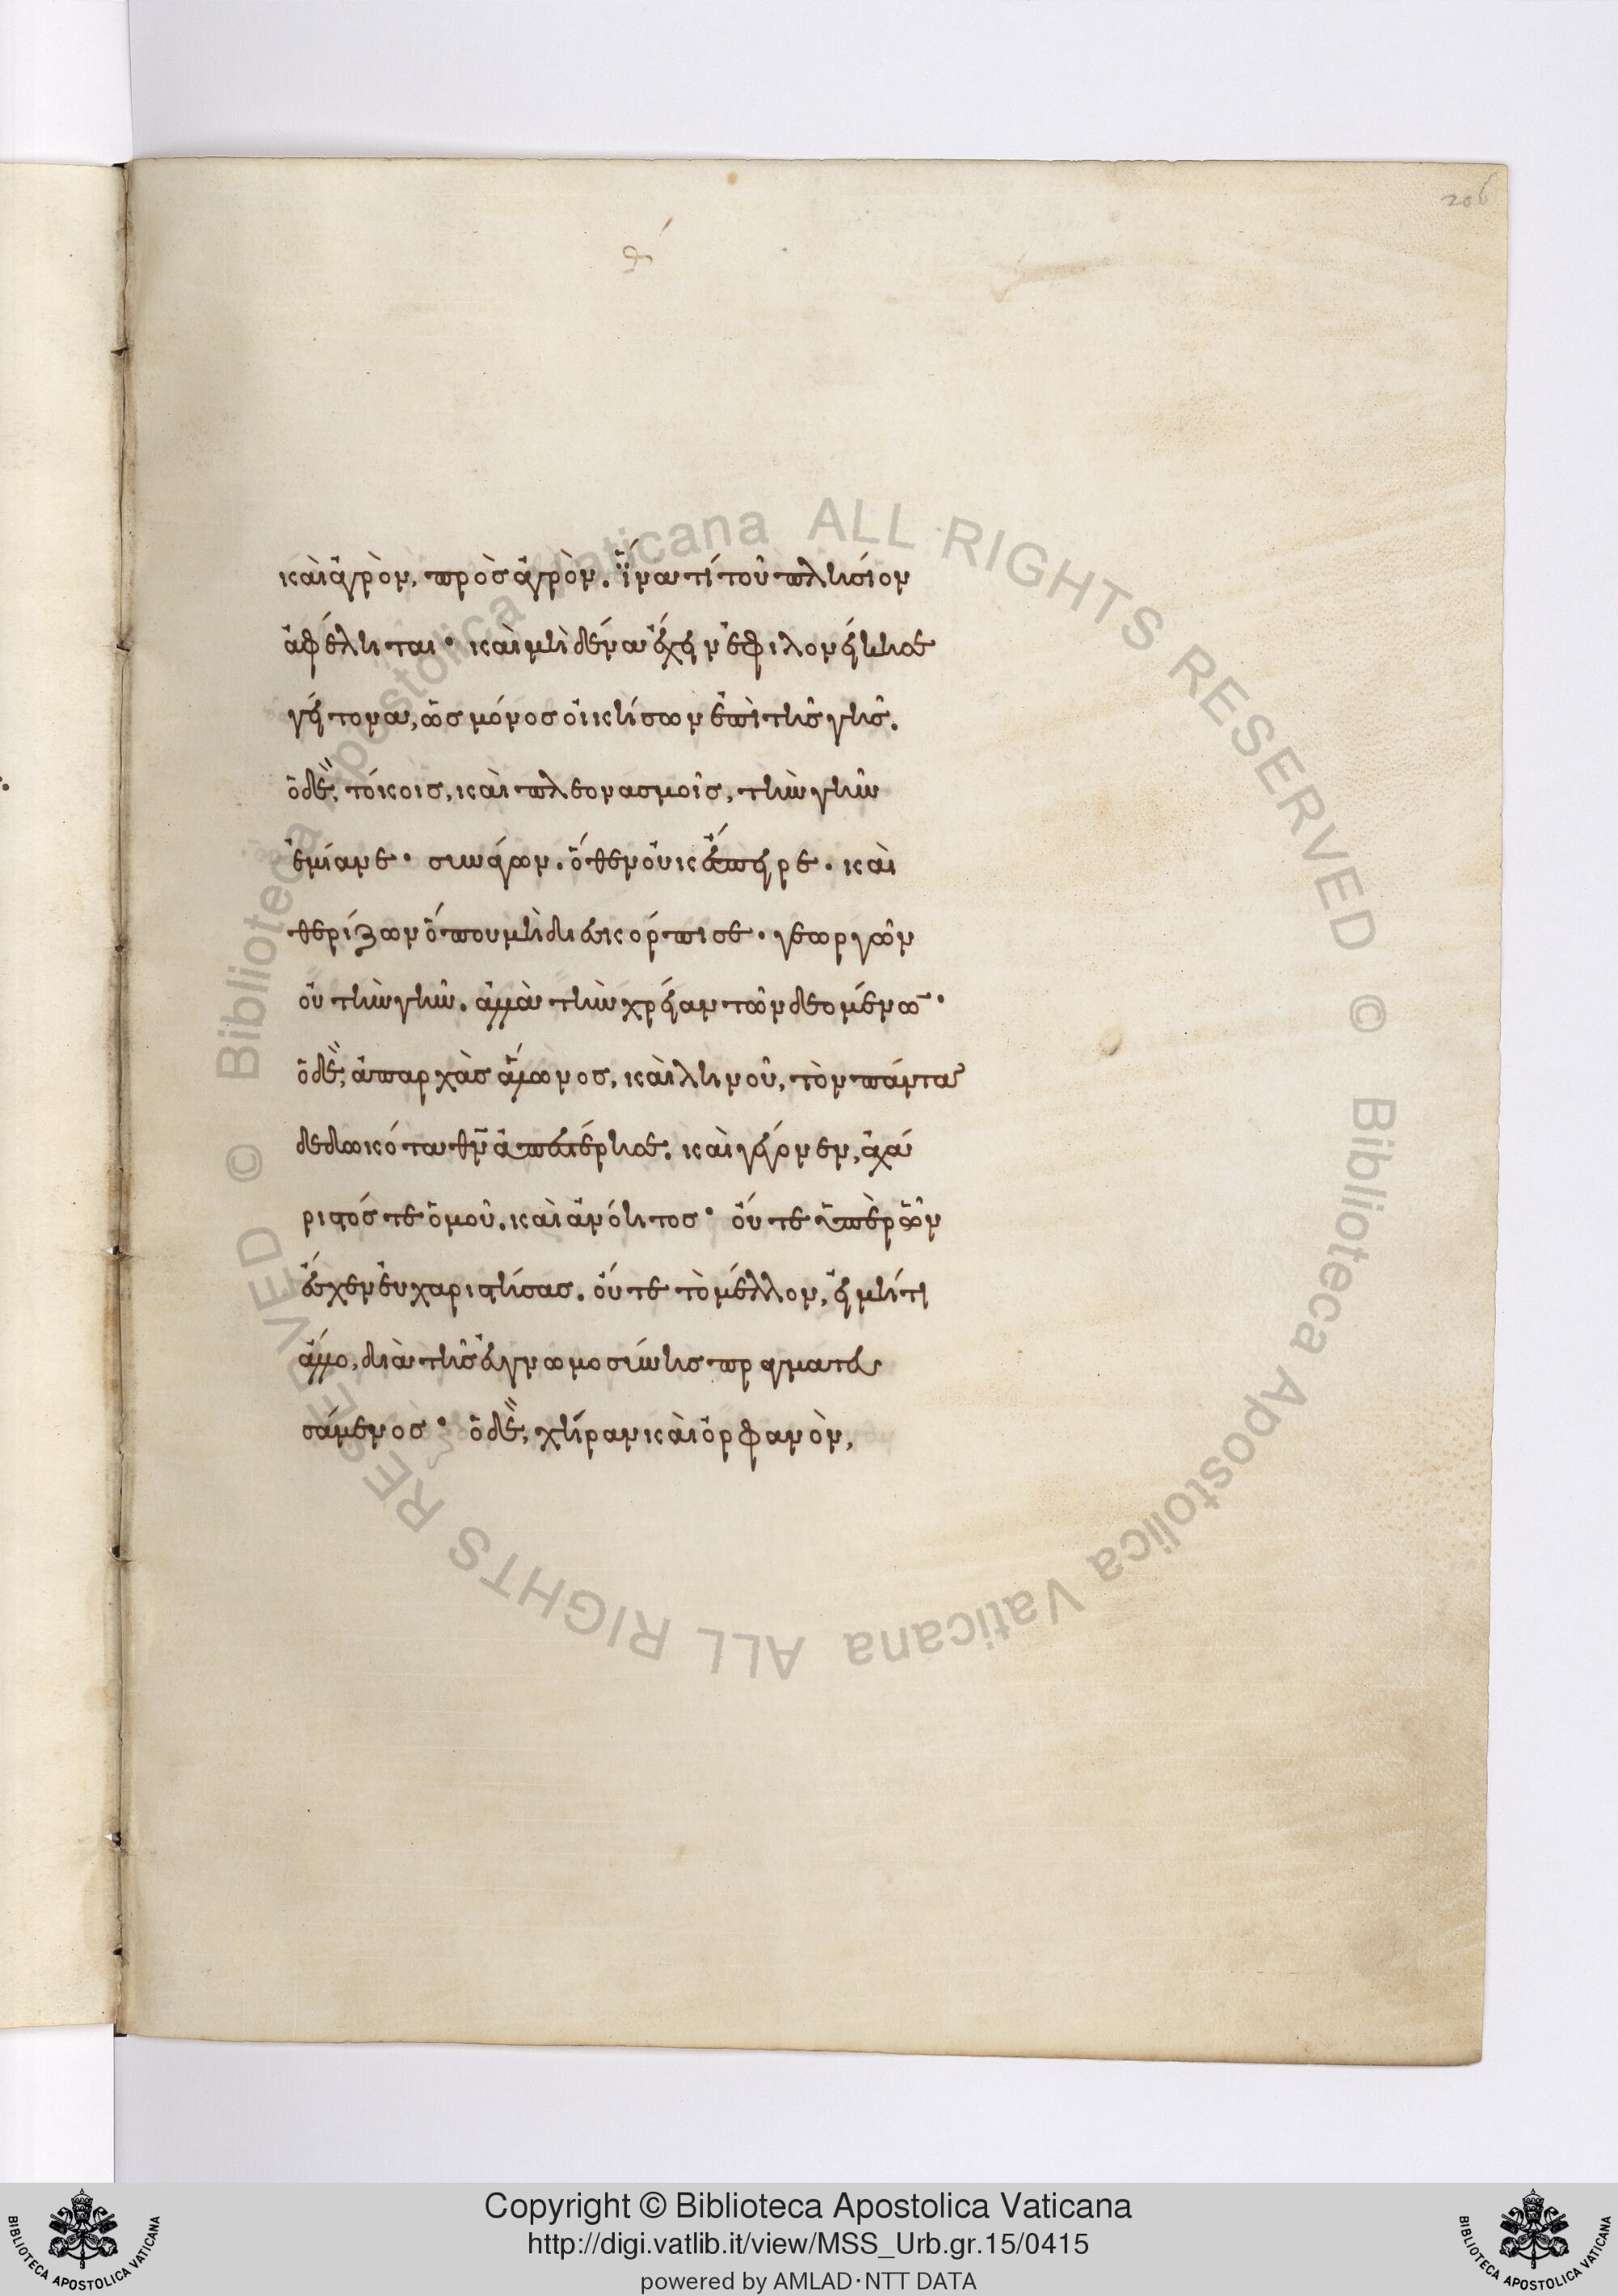 206
καὶ ἀγρὸν, πρὸς ἀγρὸν. ἵνα τί τοῦ πλησίον
ἀφέληται· καὶ μηδένα ἔχειν ἐφιλονείκησε
γείτονα, ὡς μόνος οἰκήσων ἐπὶ τῆς γῆς.
ὁ δὲ, τόκοις, καὶ πλεονασμοῖς, τὴν γῆν
ἐμίανε· συνάγων. ὅθεν οὐκ ἔσπειρε. καὶ
θερίζων ὅπου μὴ διεσκόρπισε· γεωργῶν
οὐ τὴν γῆν. ἀλλὰ τὴν χρείαν τῶν δεομένω̅·
ὁ δὲ, ἀπαρχὰς ἅλωνος, καὶ ληνοῦ, τὸν πάντα
δεδωκότα θν̅ ἀπεστέρησε. καὶ γέγονεν, ἀχά
ριστός τε ὁμοῦ. καὶ ἀνόητος· οὔτε ὑπὲρ ὧν
ἔσχεν εὐχαριστήσας. οὔτε τὸ μέλλον, εἰ μή τι
ἄλλο, διὰ τῆς εὐγνωμοσύνης πραγματευ
σάμενος· ὁ δὲ, χήραν καὶ ὀρφανὸν,
Copyright © Biblioteca Apostolica Vaticana
http://digi.vatlib.it/view/MSS_Urb.gr.15/0415
powered by AMLAD·NTT DATA
BIBLIOTECA APOSTOLICA VATICANA
BIBLIOTECA APOSTOLICA VATICANA
© Biblioteca Apostolica Vaticana ALL RIGHTS RESERVED © Biblioteca Apostolica Vaticana ALL RIGHTS RESERVED